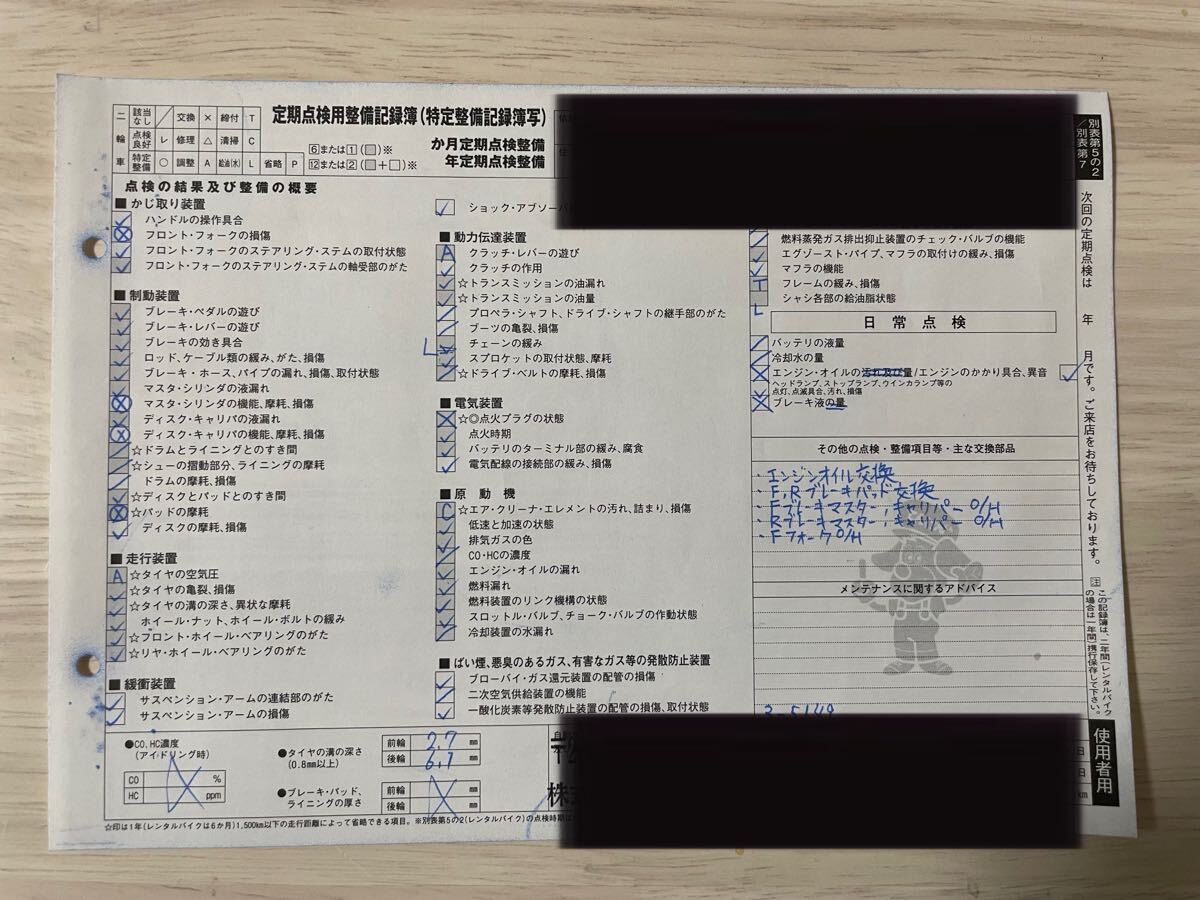 二輪車
該当なし ／ 交換 × 締付 T
点検良好 レ 修理 △ 清掃 C
特定整備 ○ 調整 A 給油(水) L 省略 P
定期点検用整備記録簿(特定整備記録簿写)
6または1(□)※ か月定期点検整備
12または2(□+□)※ 年定期点検整備
別表第5の2/別表第7
点検の結果及び整備の概要
■かじ取り装置
ハンドルの操作具合
フロント・フォークの損傷
フロント・フォークのステアリング・ステムの取付状態
フロント・フォークのステアリング・ステムの軸受部のがた
■制動装置
ブレーキ・ペダルの遊び
ブレーキ・レバーの遊び
ブレーキの効き具合
ロッド、ケーブル類の緩み、がた、損傷
ブレーキ・ホース、パイプの漏れ、損傷、取付状態
マスタ・シリンダの液漏れ
マスタ・シリンダの機能、摩耗、損傷
ディスク・キャリパの液漏れ
ディスク・キャリパの機能、摩耗、損傷
☆ドラムとライニングとのすき間
☆シューの摺動部分、ライニングの摩耗
ドラムの摩耗、損傷
☆ディスクとパッドとのすき間
☆パッドの摩耗
ディスクの摩耗、損傷
■走行装置
A ☆タイヤの空気圧
☆タイヤの亀裂、損傷
☆タイヤの溝の深さ、異状な摩耗
ホイール・ナット、ホイール・ボルトの緩み
☆フロント・ホイール・ベアリングのがた
☆リヤ・ホイール・ベアリングのがた
■緩衝装置
サスペンション・アームの連結部のがた
サスペンション・アームの損傷
ショック・アブソーバ
■動力伝達装置
A クラッチ・レバーの遊び
クラッチの作用
☆トランスミッションの油漏れ
☆トランスミッションの油量
プロペラ・シャフト、ドライブ・シャフトの継手部のがた
ブーツの亀裂、損傷
L チェーンの緩み
スプロケットの取付状態、摩耗
☆ドライブ・ベルトの摩耗、損傷
■電気装置
☆◎点火プラグの状態
点火時期
バッテリのターミナル部の緩み、腐食
電気配線の接続部の緩み、損傷
■原動機
C ☆エア・クリーナ・エレメントの汚れ、詰まり、損傷
低速と加速の状態
排気ガスの色
CO・HCの濃度
エンジン・オイルの漏れ
燃料漏れ
燃料装置のリンク機構の状態
スロットル・バルブ、チョーク・バルブの作動状態
冷却装置の水漏れ
■ばい煙、悪臭のあるガス、有害なガス等の発散防止装置
ブローバイ・ガス還元装置の配管の損傷
二次空気供給装置の機能
一酸化炭素等発散防止装置の配管の損傷、取付状態
燃料蒸発ガス排出抑止装置のチェック・バルブの機能
エグゾースト・パイプ、マフラの取付けの緩み、損傷
マフラの機能
T フレームの緩み、損傷
L シャシ各部の給油脂状態
日常点検
バッテリの液量
冷却水の量
エンジン・オイルの汚れ及び量/エンジンのかかり具合、異音
ヘッドランプ、ストップランプ、ウインカランプ等の
点灯、点滅具合、汚れ、損傷
ブレーキ液の量
その他の点検・整備項目等・主な交換部品
・エンジンオイル交換
・F,Rブレーキパッド交換
・Fブレーキマスター,キャリパー O/H
・Rブレーキマスター,キャリパー O/H
・Fフォーク O/H
メンテナンスに関するアドバイス
次回の定期点検は 年 月です。ご来店をお待ちしております。
注 この記録簿は、二年間(レンタルバイク
の場合は一年間)携行保存して下さい。
使用者用
●CO、HC濃度
(アイドリング時)
CO %
HC ppm
●タイヤの溝の深さ
(0.8mm以上)
前輪 3.7 mm
後輪 6.7 mm
●ブレーキ・パッド、
ライニングの厚さ
前輪 mm
後輪 mm
株
日
日
km
☆印は1年(レンタルバイクは6か月)1,500km以下の走行距離によって省略できる項目。※別表第5の2(レンタルバイク)の点検時期は